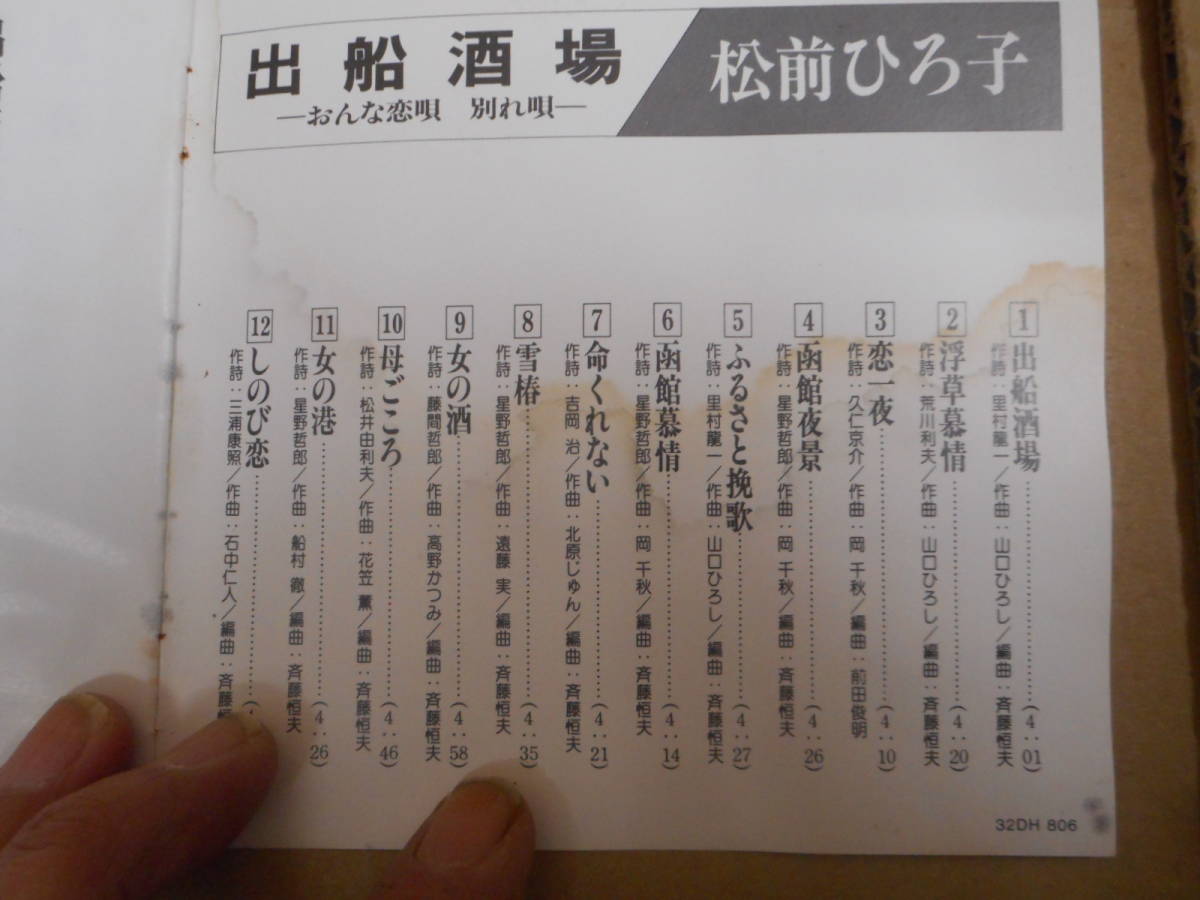 出船酒場
―おんな恋唄　別れ唄―
松前ひろ子
1 出船酒場……(4:01)
作詩：里村龍一／作曲：山口ひろし／編曲：斉藤恒夫
2 浮草慕情……(4:20)
作詩：荒川利夫／作曲：山口ひろし／編曲：斉藤恒夫
3 恋一夜……(4:10)
作詩：久仁京介／作曲：岡 千秋／編曲：前田俊明
4 函館夜景……(4:26)
作詩：星野哲郎／作曲：岡 千秋／編曲：斉藤恒夫
5 ふるさと挽歌……(4:27)
作詩：里村龍一／作曲：山口ひろし／編曲：斉藤恒夫
6 函館慕情……(4:14)
作詩：星野哲郎／作曲：岡 千秋／編曲：斉藤恒夫
7 命くれない……(4:21)
作詩：吉岡 治／作曲：北原じゅん／編曲：斉藤恒夫
8 雪椿……(4:35)
作詩：星野哲郎／作曲：遠藤 実／編曲：斉藤恒夫
9 女の酒……(4:58)
作詩：藤間哲郎／作曲：高野かつみ／編曲：斉藤恒夫
10 母ごころ……(4:46)
作詩：松井由利夫／作曲：花笠 薫／編曲：斉藤恒夫
11 女の港……(4:26)
作詩：星野哲郎／作曲：船村 徹／編曲：斉藤恒夫
12 しのび恋……
作詩：三浦康照／作曲：石中仁人／編曲：斉藤恒
32DH 806